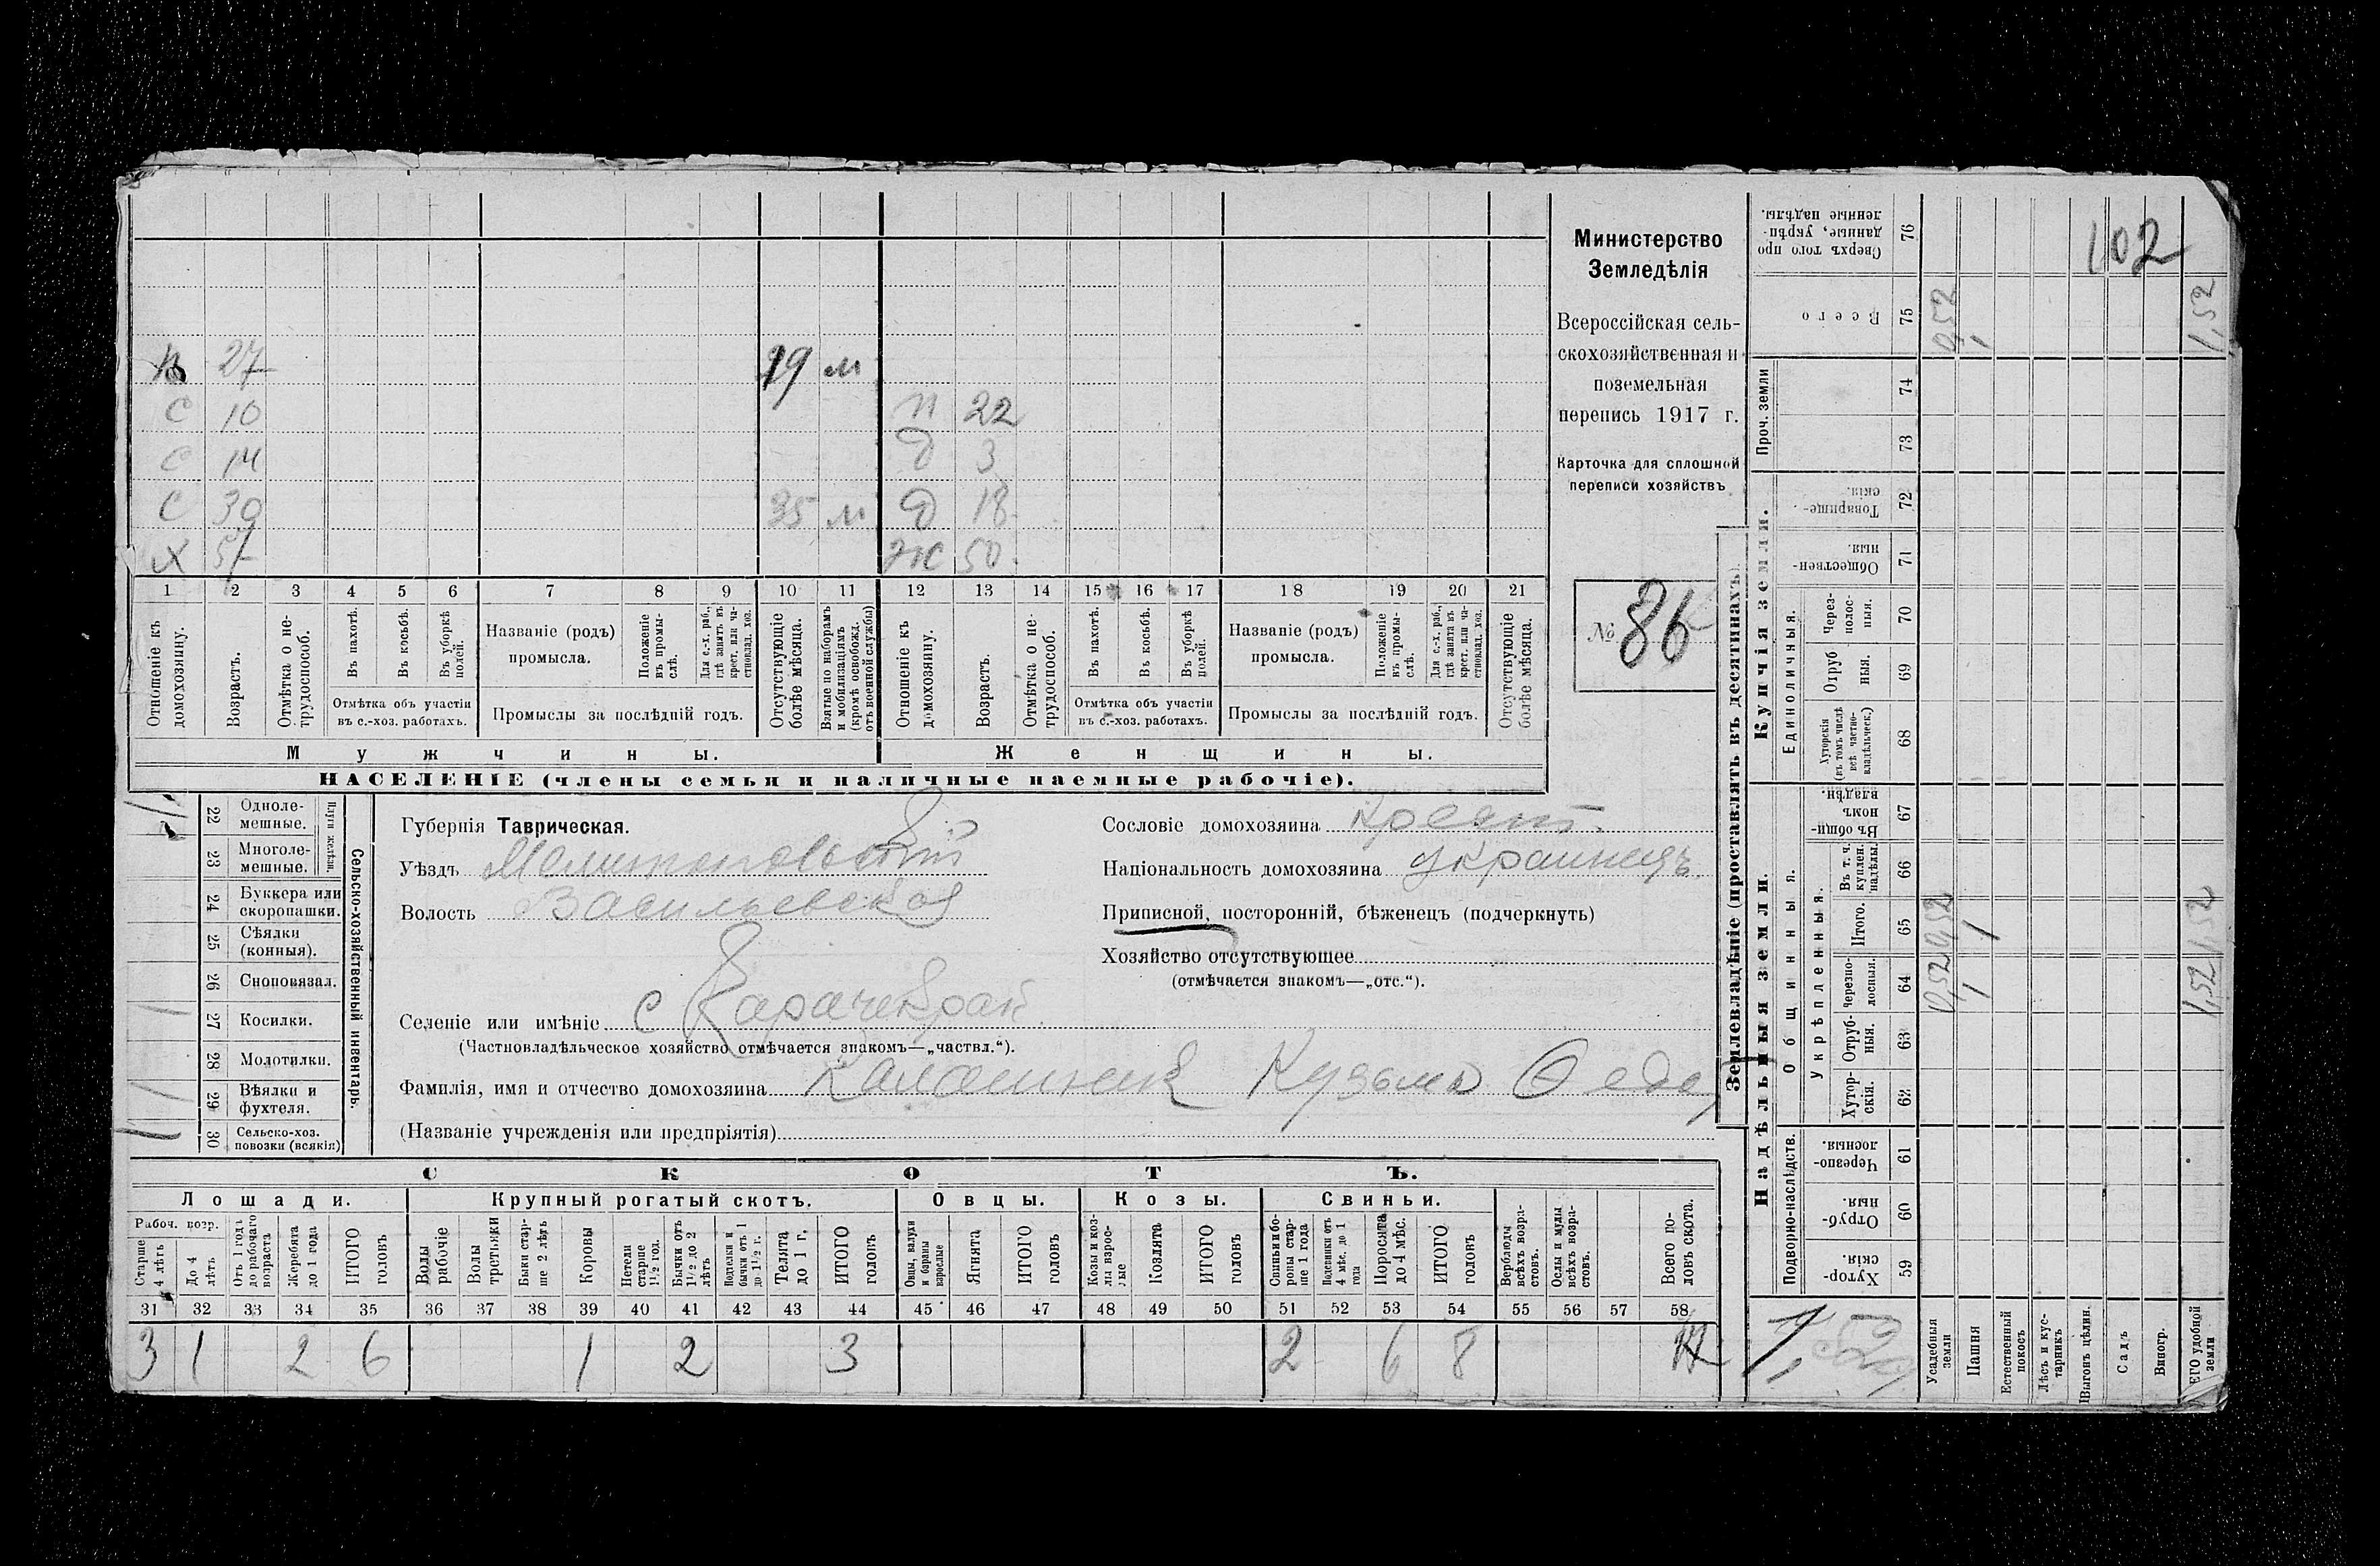 Министерство
Земледѣлія
Всероссійская сель-
скохозяйственная и
поземельная
перепись 1917 г.
Карточка для сплошной
переписи хозяйствъ
№ 86
102
27 19 м
с 10 п 22
с 14 д 3
с 39 35 м д 18
х 57 ж 50
1 2 3 4 5 6 7 8 9 10 11 12 13 14 15 16 17 18 19 20 21
Отношеніе къ домохозяину.
Возрастъ.
Отмѣтка о не-трудоспособ.
Въ пахотѣ.
Въ косьбѣ.
Въ уборкѣ полей.
Отмѣтка объ участіи
въ с.-хоз. работахъ.
Названіе (родъ)
промысла.
Положеніе въ промы-слѣ.
Для с.-х. раб., гдѣ занятъ въ крест. или ча-стновлад. хоз.
Промыслы за послѣдній годъ.
Отсутствующіе болѣе мѣсяца.
Взятые по наборамъ и мобилизаціямъ (кромѣ освобожд. отъ военной службы)
Отношеніе къ домохозяину.
Возрастъ.
Отмѣтка о не-трудоспособ.
Въ пахотѣ.
Въ косьбѣ.
Въ уборкѣ полей.
Отмѣтка объ участіи
въ с.-хоз. работахъ.
Названіе (родъ)
промысла.
Положеніе въ промы-слѣ.
Для с.-х. раб., гдѣ занята въ крест. или ча-стновлад. хоз.
Промыслы за послѣдній годъ.
Отсутствующіе болѣе мѣсяца.
Мужчины. Женщины.
НАСЕЛЕНІЕ (члены семьи и наличные наемные рабочіе).
Сельско-хозяйственный инвентарь.
Плуги желѣзн.
22 Одноле-мешные.
23 Многоле-мешные.
24 Буккера или скоропашки.
25 Сѣялки (конныя).
26 Сноповязал.
27 Косилки.
28 Молотилки.
29 Вѣялки и фухтеля.
30 Сельско-хоз. повозки (всякія)
Губернія Таврическая.
Уѣздъ Мелитопольскій
Волость Васильевская
Селеніе или имѣніе с Карачекрак
(Частновладѣльческое хозяйство отмѣчается знакомъ—„частвл.“).
Фамилія, имя и отчество домохозяина Калашник Кузьма Федо
(Названіе учрежденія или предпріятія)
Сословіе домохозяина крест.
Національность домохозяина украинецъ
Приписной, посторонній, бѣженецъ (подчеркнуть)
Хозяйство отсутствующее
(отмѣчается знакомъ—„отс.“).
СКОТЪ.
Лошади. Крупный рогатый скотъ. Овцы. Козы. Свиньи.
Рабоч. возр.
Старше 4 лѣтъ
До 4 лѣтъ
Отъ 1 года до рабочаго возраста
Жеребята до 1 года
ИТОГО головъ
Волы рабочіе
Волы третьяки
Быки стар-ше 2 лѣтъ
Коровы
Нетели старше 1½ год.
Бычки отъ 1½ до 2 лѣтъ
Подтелки и бычки отъ 1 до 1½ г.
Телята до 1 г.
ИТОГО головъ
Овцы, валухи и бараны взрослые
Ягнята
ИТОГО головъ
Козы и коз-лы взрос-лые
Козлята
ИТОГО головъ
Свиньи и бо-ровы стар-ше 1 года
Подсвинки отъ 4 мѣс. до 1 года
Поросята до 4 мѣс.
ИТОГО головъ
Верблюды всѣхъ возра-стовъ.
Ослы и мулы всѣхъ возра-стовъ.
Всего го-ловъ скота.
31 32 33 34 35 36 37 38 39 40 41 42 43 44 45 46 47 48 49 50 51 52 53 54 55 56 57 58
3 1 2 6 1 2 3 2 6 8
Землевладѣніе (проставлять въ десятинахъ)
Купчія земли.
Надѣльныя земли.
Сверхъ того про данные, укрѣп-ленные надѣлы. 76
Всего 75 0,52 1 1,52
Проч. земли 74 73
Товарище-скія. 72
Обществен-ныя. 71
Единоличныя.
Через-полос-ныя. 70
Отруб ныя. 69
Хуторскія (въ томъ числѣ всѣ частно-владѣльческ.) 68
Общинныя.
Въ общи-номъ владѣн. 67
Укрѣпленныя.
Въ т. ч. куплен. надѣлы. 66
Итого. 65 0,52 1 1,52
Черезпо-лосныя. 64 0,52 1 1,52
Отруб-ныя. 63
Хутор-скія. 62
Подворно-наслѣдств.
Черезпо-лосныя. 61
Отруб-ныя. 60
Хутор-скія. 59
1,52
Усадебныя земли
Пашня
Естественный покосъ
Лѣсъ и кус-тарникъ
Выгонъ цѣлин.
Садъ
Виногр.
ЕГО удобной земли